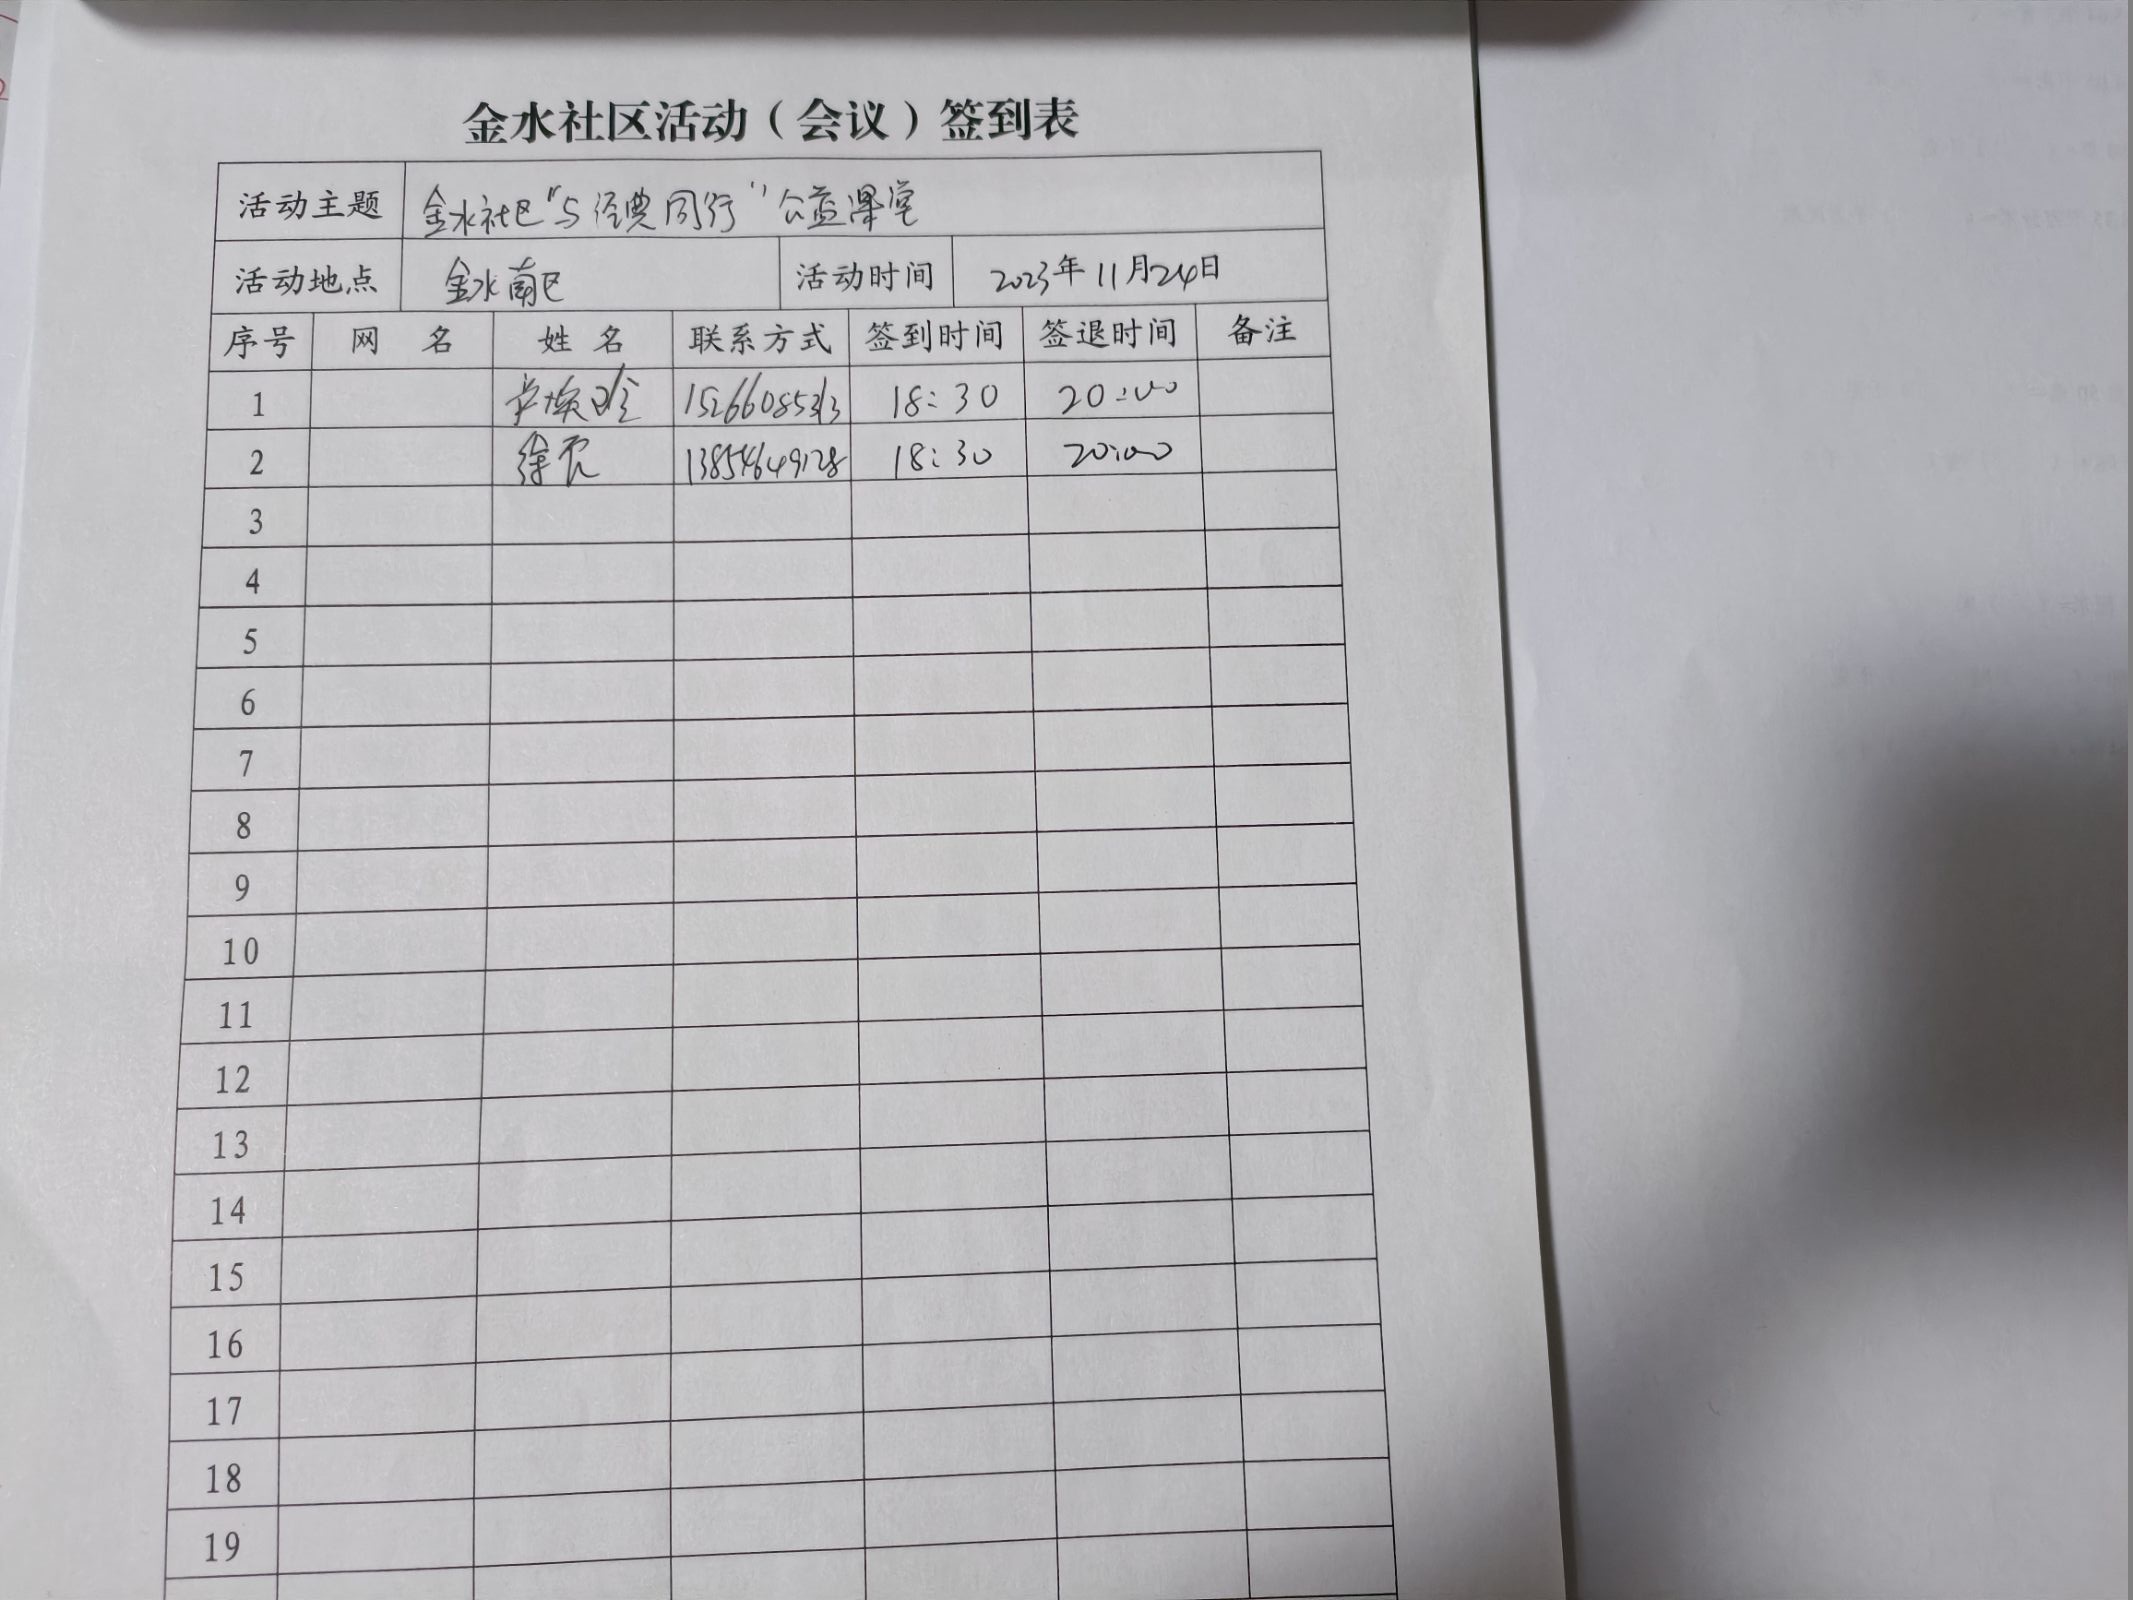 金水社区活动（会议）签到表
活动主题 金水社区"与经典同行"公益课堂
活动地点 金水南区 活动时间 2023年11月24日
序号 网 名 姓 名 联系方式 签到时间 签退时间 备注
1 18:30 20:00
2 徐 13854649128 18:30 20:00
3
4
5
6
7
8
9
10
11
12
13
14
15
16
17
18
19